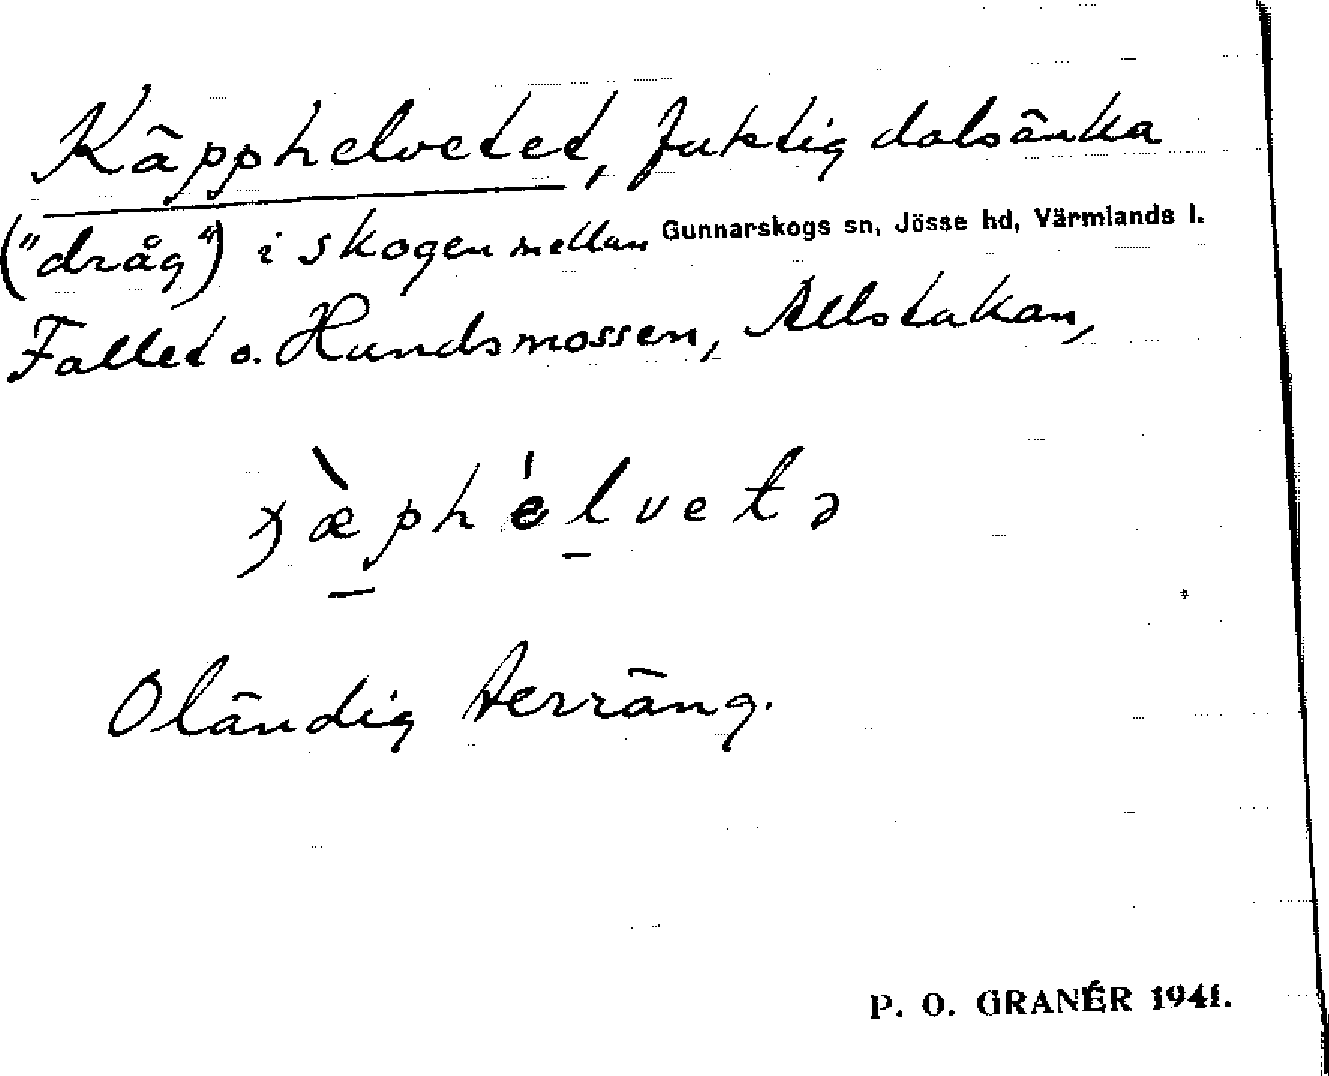 Käpphelvetet, fuktig dalsänka
("dråg") i skogen mellan Gunnarskogs sn, Jösse hd, Värmlands l.
Fallet o. Hundsmossen, Allstakan,
æphélvetə
Oländig terräng.
P. O. GRANÉR 1941.